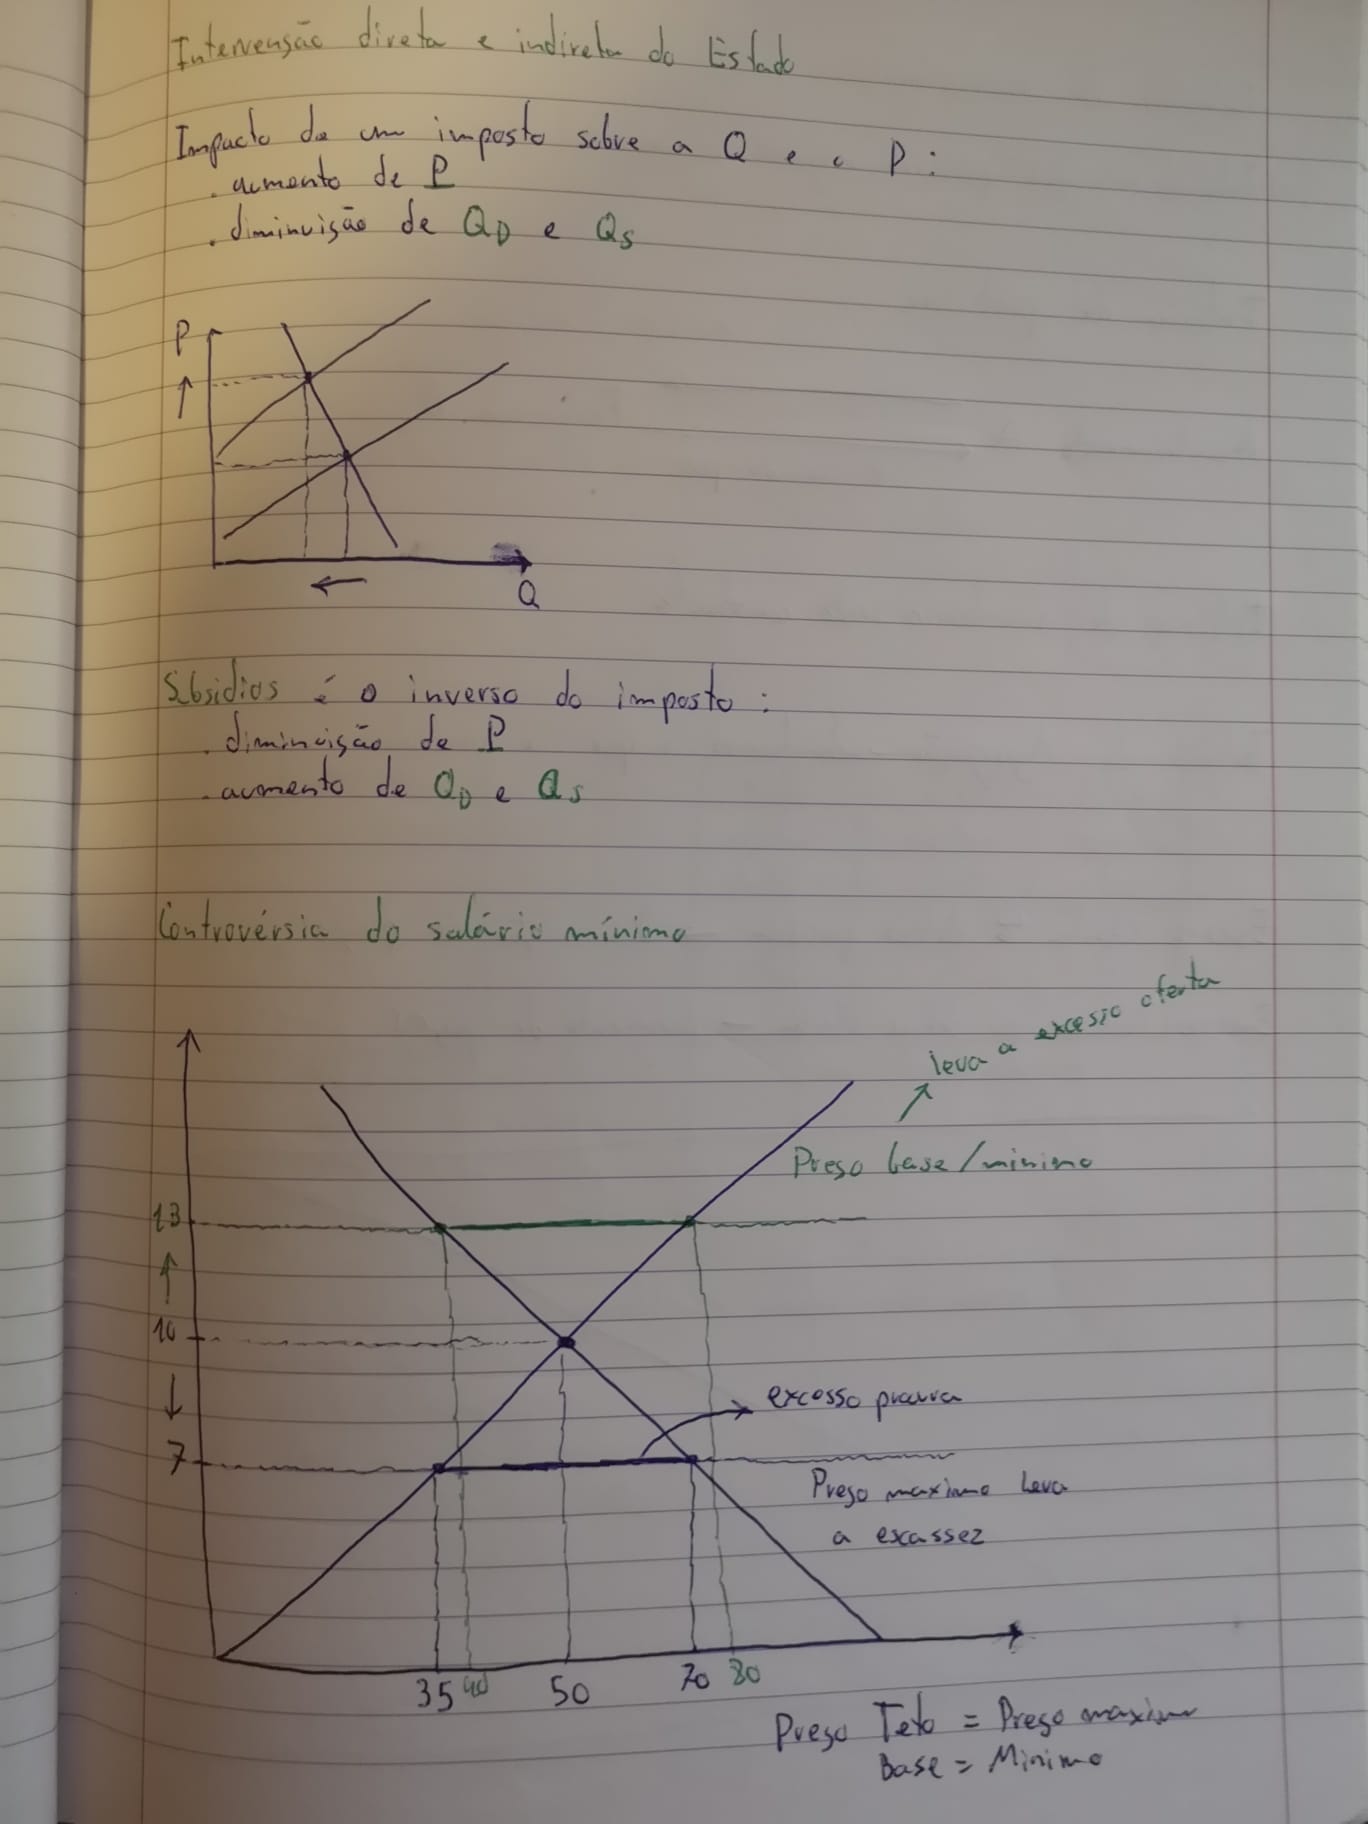 Intervensão direta e indireta do Estado
Impacto de um imposto sobre a Q e o P:
. aumento de P
. diminuição de QD e QS
P
Q
Subsidios é o inverso do imposto:
. diminuição de P
. aumento de QD e QS
Controvérsia do salário mínimo
leva a excesso oferta
Preso base/minimo
13
10
excesso procura
7
Preso maximo leva
a escassez
35 40 50 70 80
Preso Teto = Preso maximo
Base = Minimo